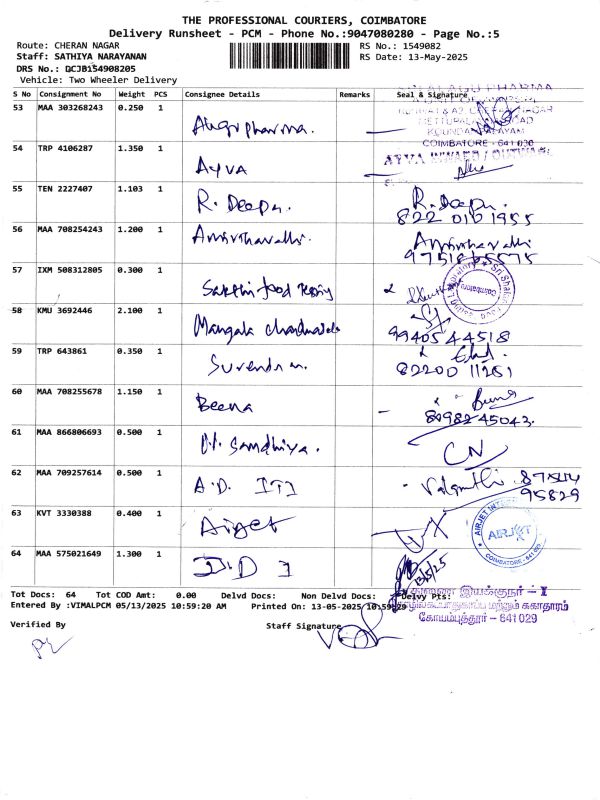 THE PROFESSIONAL COURIERS, COIMBATORE
Delivery Runsheet - PCM - Phone No.:9047080280 - Page No.:5
Route: CHERAN NAGAR
RS No.: 1549082
Staff: SATHIYA NARAYANAN
RS Date: 13-May-2025
DRS No.: DCJB154908205
Vehicle: Two Wheeler Delivery
S No Consignment No Weight PCS Consignee Details Remarks Seal & Signature
53 MAA 303268243 0.250 1
COIMBATORE - 641 030
54 TRP 4106287 1.350 1 Ayva
AYVA
55 TEN 2227407 1.103 1 R. Deepa. R. Deepa.
822 016 1955
56 MAA 708254243 1.200 1 Amirthavalli. Amirthavalli
57 IXM 508312805 0.300 1 Sakthi food Testing
Coimbatore
58 KMU 3692446 2.100 1 Mangala
99405 44518
59 TRP 643861 0.350 1 Surendran.
82200 11261
60 MAA 708255678 1.150 1 Beena
61 MAA 866806693 0.500 1 Sandhiya.
62 MAA 709257614 0.500 1 A.D. ITI
95829
63 KVT 3330388 0.400 1 Airjet
AIRJET
COIMBATORE - 641
64 MAA 575021649 1.300 1
13/5/25
Tot Docs: 64 Tot COD Amt: 0.00 Delvd Docs: Non Delvd Docs: Delvy Pts:
Entered By :VIMALPCM 05/13/2025 10:59:20 AM Printed On: 13-05-2025 10:59:29
மற்றும் சுகாதாரம்
கோயம்புத்தூர் - 641 029
Verified By
Staff Signature